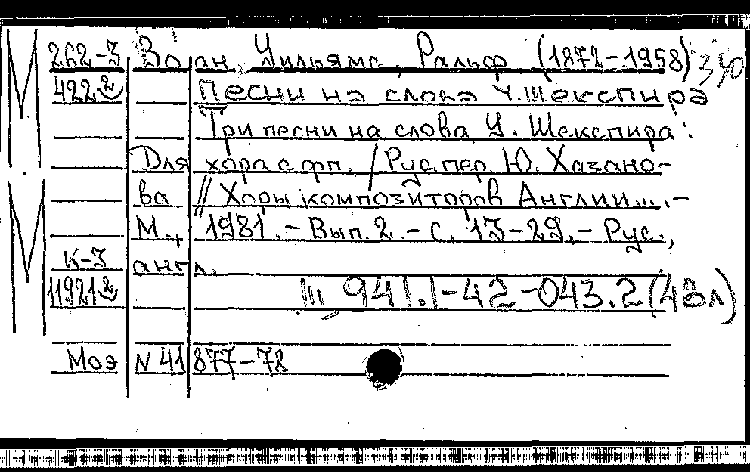 262-3 Воан Уильямс, Ральф (1872-1958) 330
4222 Песни на слова У. Шекспира
Три песни на слова У. Шекспира:
Для хора с фп. / Рус. пер. Ю. Хазано-
ва // Хоры композиторов Англии... -
М., 1981. - Вып. 2. - С. 13-29. - Рус.,
К-3 англ.
119212 Ш 941.1-42-043.2 (4Вл)
Моэ N 41877-78